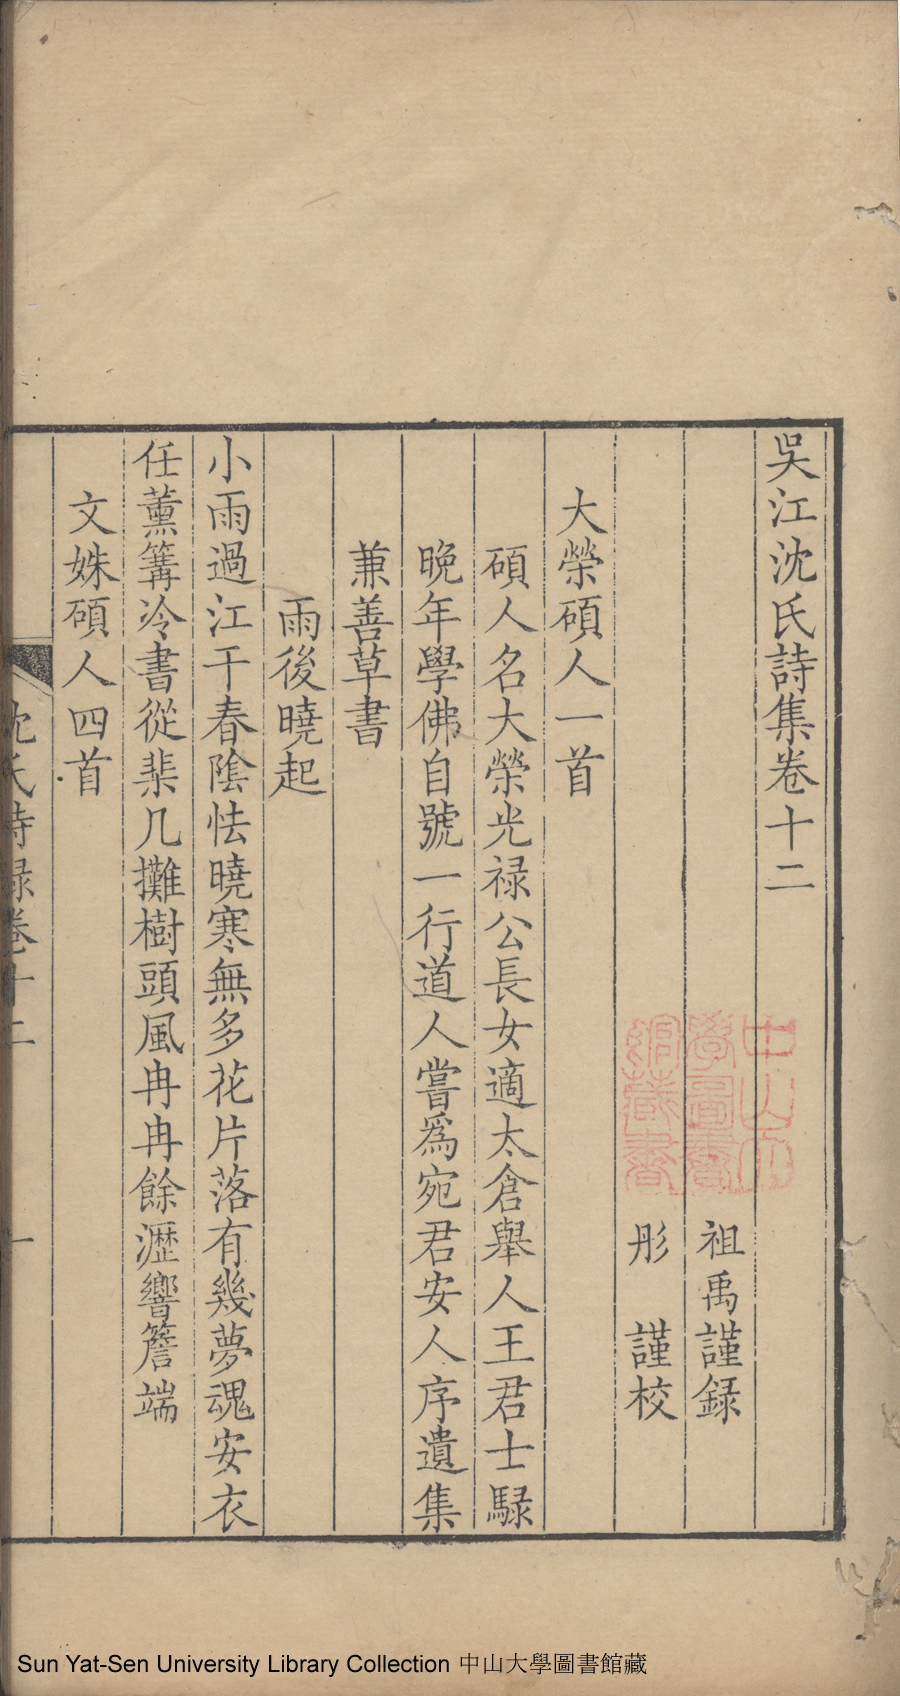 吳江沈氏詩集卷十二
祖禹謹録
彤　謹校
大榮碩人一首
碩人名大榮光禄公長女適太倉舉人王君士騄
晚年學佛自號一行道人嘗爲宛君安人序遺集
兼善草書
雨後曉起
小雨過江干春陰怯曉寒無多花片落有幾夢魂安衣
任薰篝冷書從棐几攤樹頭風冉冉餘瀝響簷端
文姝碩人四首
沈氏詩録卷十二　一
中山大
學圖書
館藏書
Sun Yat-Sen University Library Collection 中山大學圖書館藏